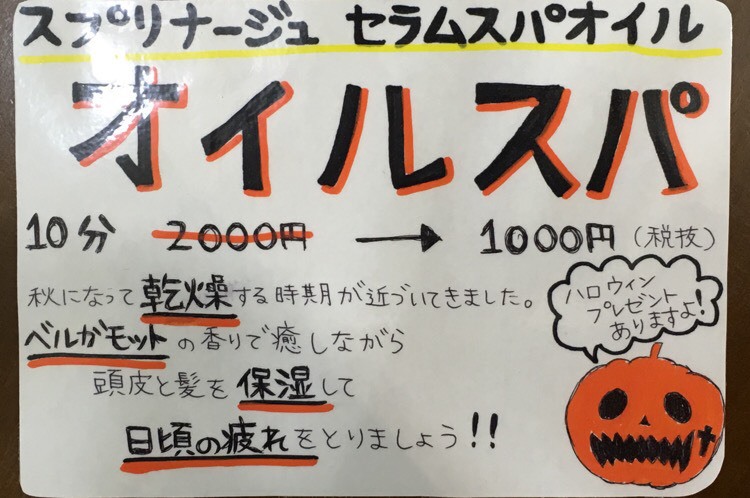 スプリナージュ セラムスパオイル
オイルスパ
10分 2000円 → 1000円(税抜)
秋になって乾燥する時期が近づいてきました。
ベルガモットの香りで癒しながら
頭皮と髪を保湿して
日頃の疲れをとりましょう!!
ハロウィン
プレゼント
ありますよ!